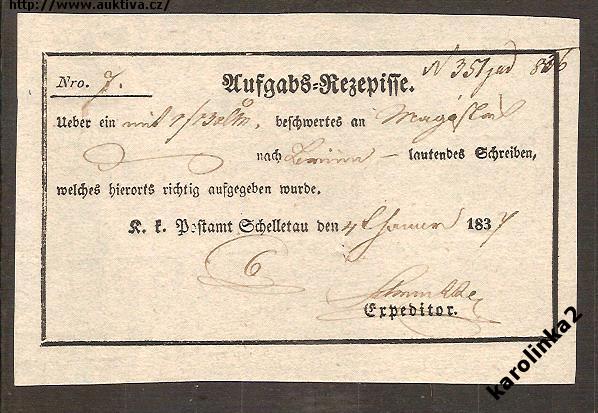 http://www.auktiva.cz/
Nro. 7. Aufgabs-Rezepisse.
Ueber ein mit beschwertes an
nach Brünn – lautendes Schreiben,
welches hierorts richtig aufgegeben wurde.
K. k. Postamt Schelletau den 4t Januar 1837
Expeditor.
karolinka2